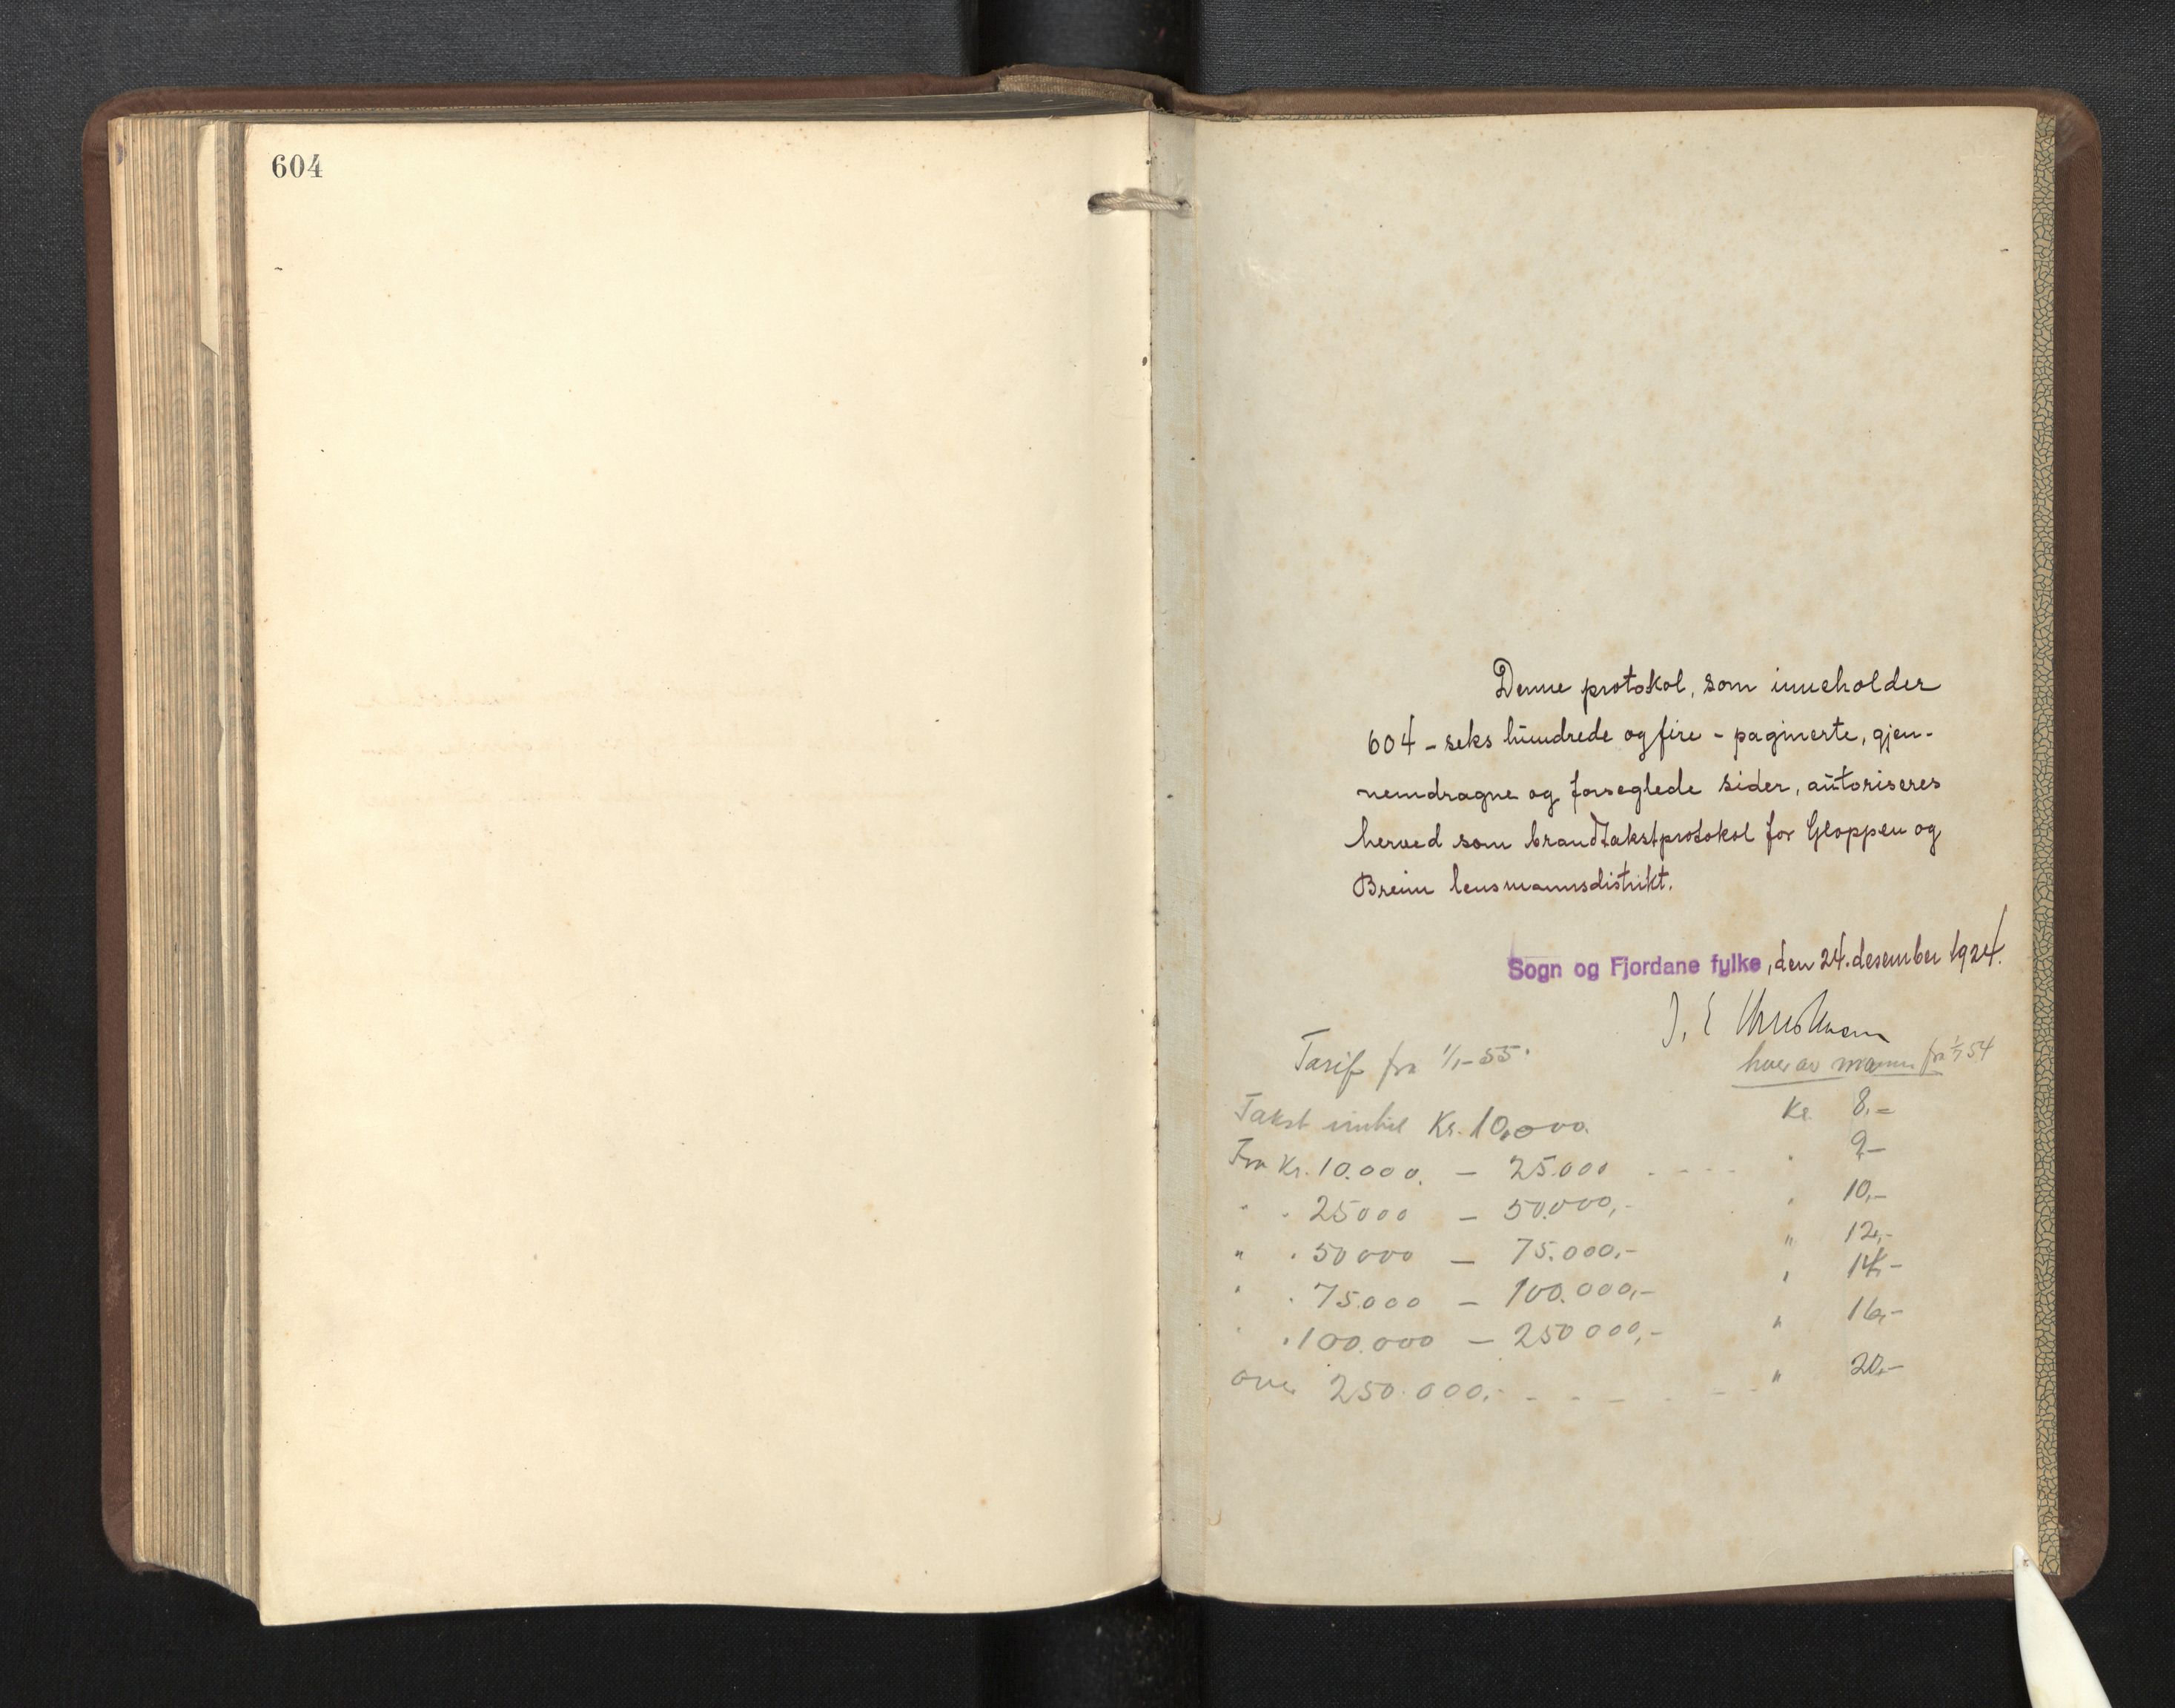 604
Denne protokol, som inneholder
604 - seks hundrede og fire - paginerte, gjen-
nemdragne og forseglede sider, autoriseres
herved som brandtakstprotokol for Gloppen og
Breim lensmannsdistrikt.
Sogn og Fjordane fylke, den 24. desember 1924.
Tarif fra 1/1-55.
hver av mann fra 1/7 54
Takst inntil Kr. 10.000. Kr. 8,=
Fra Kr. 10.000. — 25.000 - - - - " 9,-
" " 25000 — 50.000,- " 10,-
" " 50000 — 75.000,- " 12,-
" " 75.000 — 100.000,- " 14,-
" " 100.000 — 250000,- " 16,-
over 250.000,- - - - - - - " 20,-